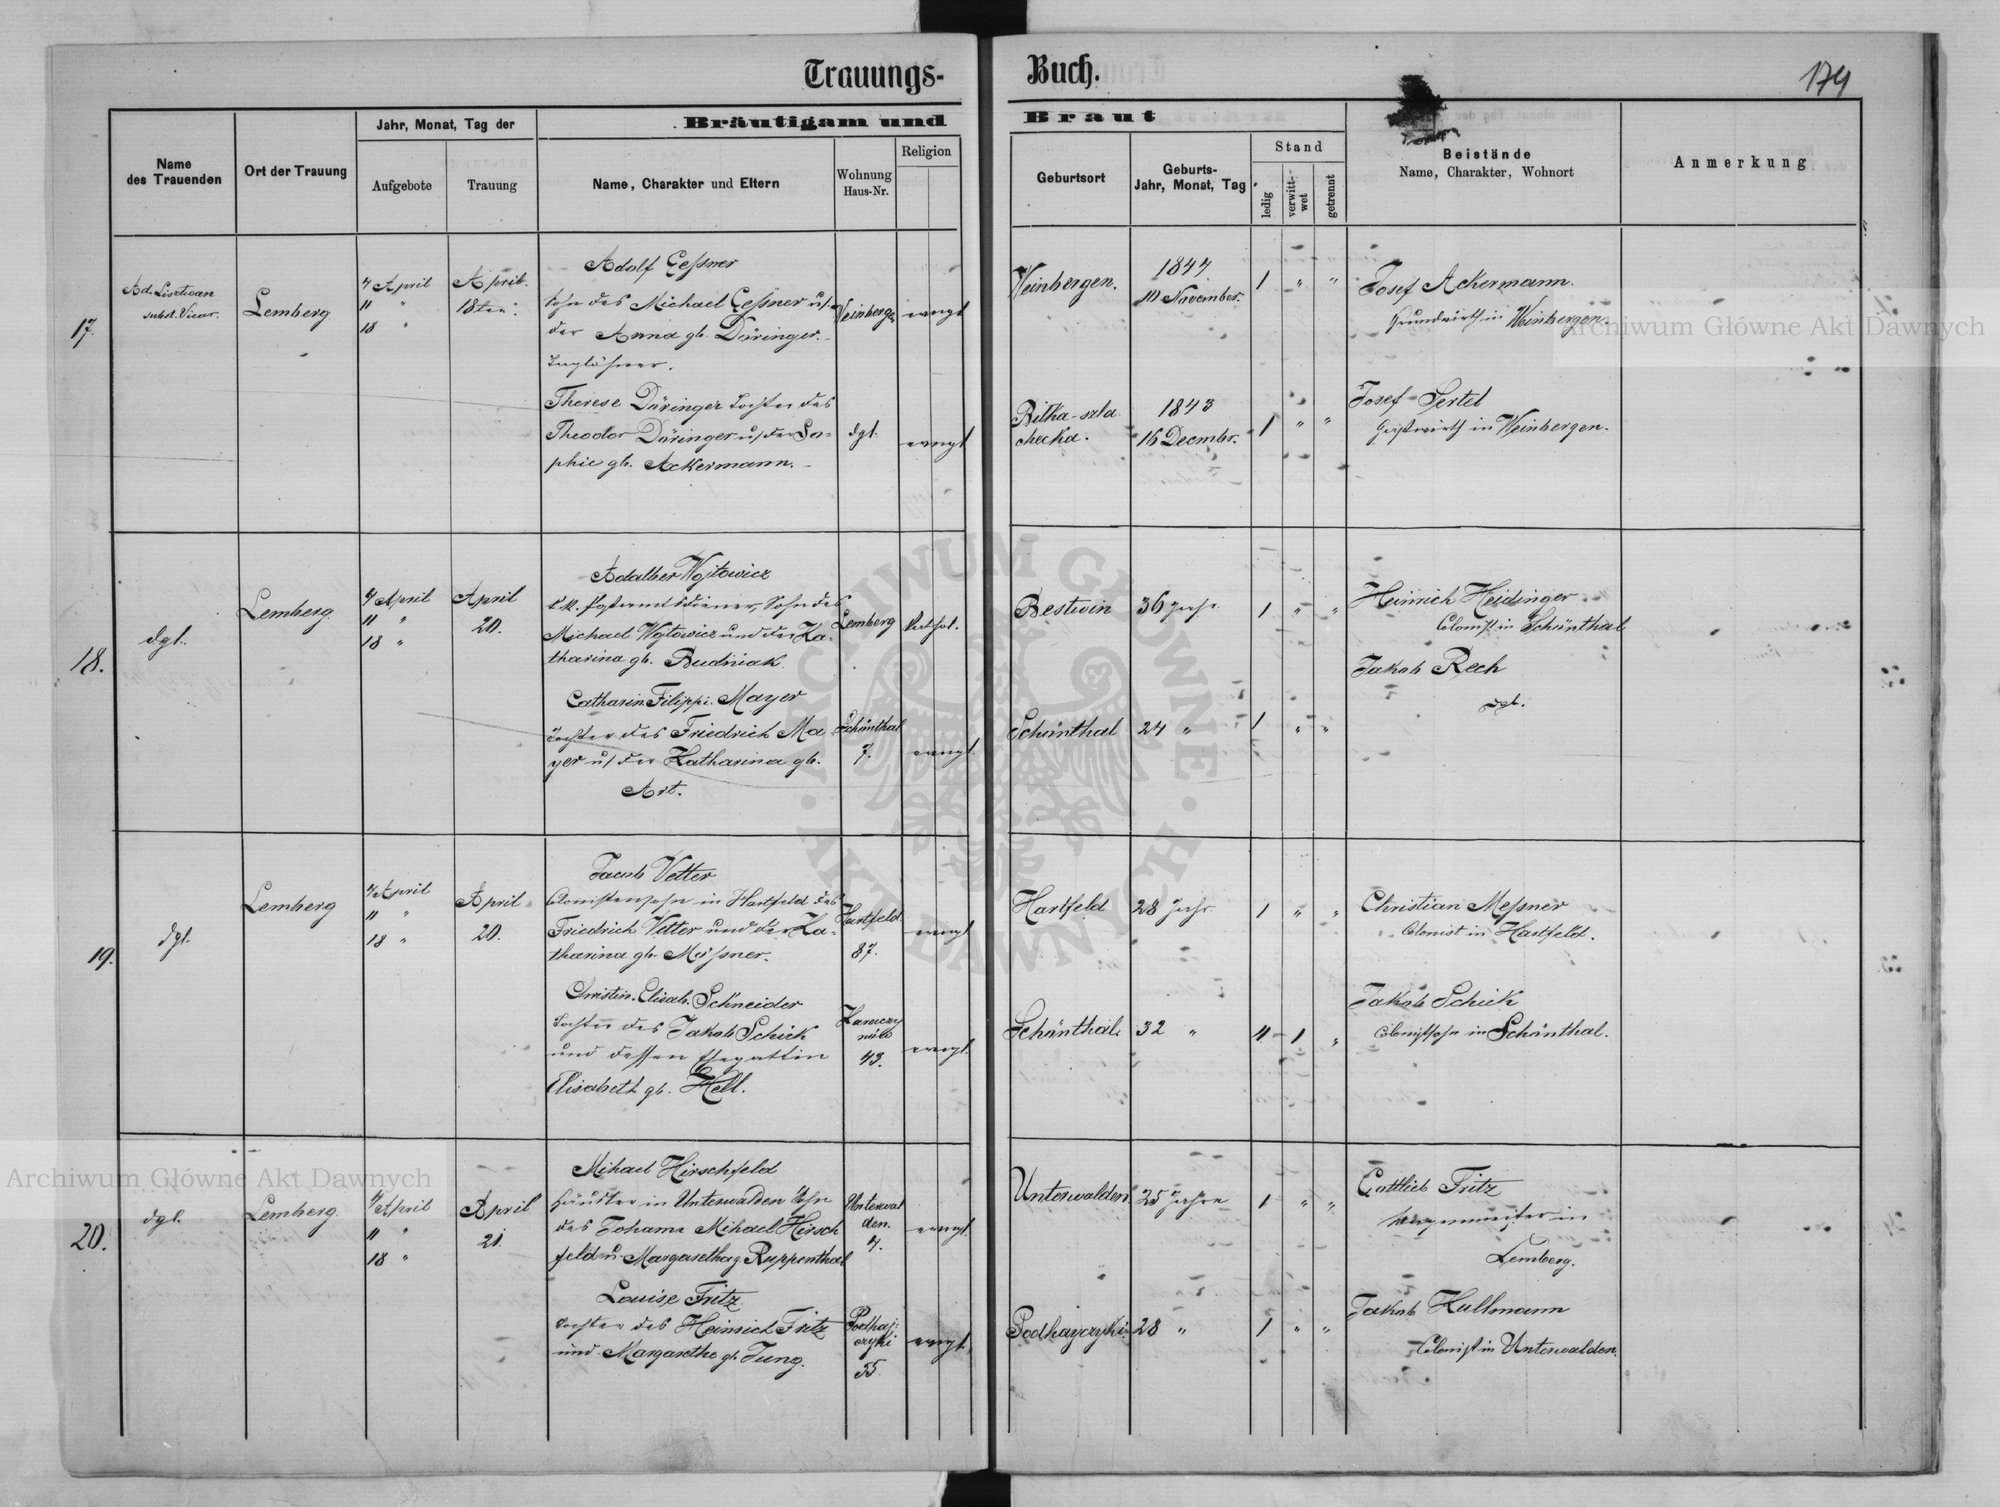 Trauungs-
Buch.
174
Name
des Trauenden
Ort der Trauung
Jahr, Monat, Tag der
Aufgebote
Trauung
Bräutigam und
Name, Charakter und Eltern
Wohnung
Haus-Nr.
Religion
Braut
Geburtsort
Geburts-
Jahr, Monat, Tag
Stand
ledig
verwitt-
wet
getrennt
Beistände
Name, Charakter, Wohnort
Anmerkung
17.
Ad. Lisztwan
subst. Vicar.
Lemberg
4 April
11 "
18 "
April.
18ten.
Adolf Geßner
Sohn des Michael Geßner u/
der Anna gb. Düringer.
Taglöhner.
Weinbergen
evngl
Weinbergen.
1844
10 November.
1 " "
Josef Ackermann.
Grundwirth in Weinbergen.
Therese Düringer Tochter des
Theodor Düringer u/ der So=
phie gb. Ackermann.
dgl.
evngl
Bilka-szla
checka.
1843
16 Decembr.
1 " "
Josef Sertel
Gastwirth in Weinbergen.
18.
dgl.
Lemberg
4 April
11 "
18 "
April
20.
Adalber Wojtowicz
k.k. Postamtsdiener, Sohn des
Michael Wojtowicz und der Ka-
tharina gb. Budniak.
Lemberg
kathol.
Bestwin
36 Jahr.
1 " "
Heinrich Heidinger
Colonist in Schönthal
Catharin Filippi. Mayer
Tochter des Friedrich Ma
yer u/ der Katharina gb.
Art.
Schönthal
7.
evngl.
Schönthal
24 "
1 " "
Jakob Rech
dgl.
19.
dgl.
Lemberg
4 April
11 "
18 "
April
20.
Jacob Vetter
Colonistensohn in Hartfeld des
Friedrich Vetter und der Ka-
tharina gb. Meßner.
Hartfeld
87.
evngl
Hartfeld
28 Jahr.
1 " "
Christian Meßner
Colonist in Hartfeld.
Christin. Elisab. Schneider
Tochter des Jakob Schick
und dessen Ehegattin
Elisabeth gb. Hell.
43.
evngl.
Schönthal
32 "
1 "
Jakob Schick
Colonistsohn in Schönthal.
20.
dgl.
Lemberg.
4 April
11 "
18 "
April
21.
Mihael Hirschfeld
Häusler in Unterwalden Sohn
des Johann Mihael Hirsch
feld u. Margaretha g. Ruppenthal
Unterwal
den.
4.
evngl.
Unterwalden
25 Jahre
1 " "
Gottlieb Fritz
Wagenmeister in
Lemberg.
Louise Fritz
Tochter des Heinrich Fritz
und Margarethe gb. Jung.
Podhaj-
czyki
55
evngl.
Podhayczyki
28 "
1 " "
Jakob Hullmann
Colonist in Unterwalden.
Archiwum Główne Akt Dawnych
Archiwum Główne Akt Dawnych
ARCHIWUM GŁÓWNE · AKT DAWNYCH ·